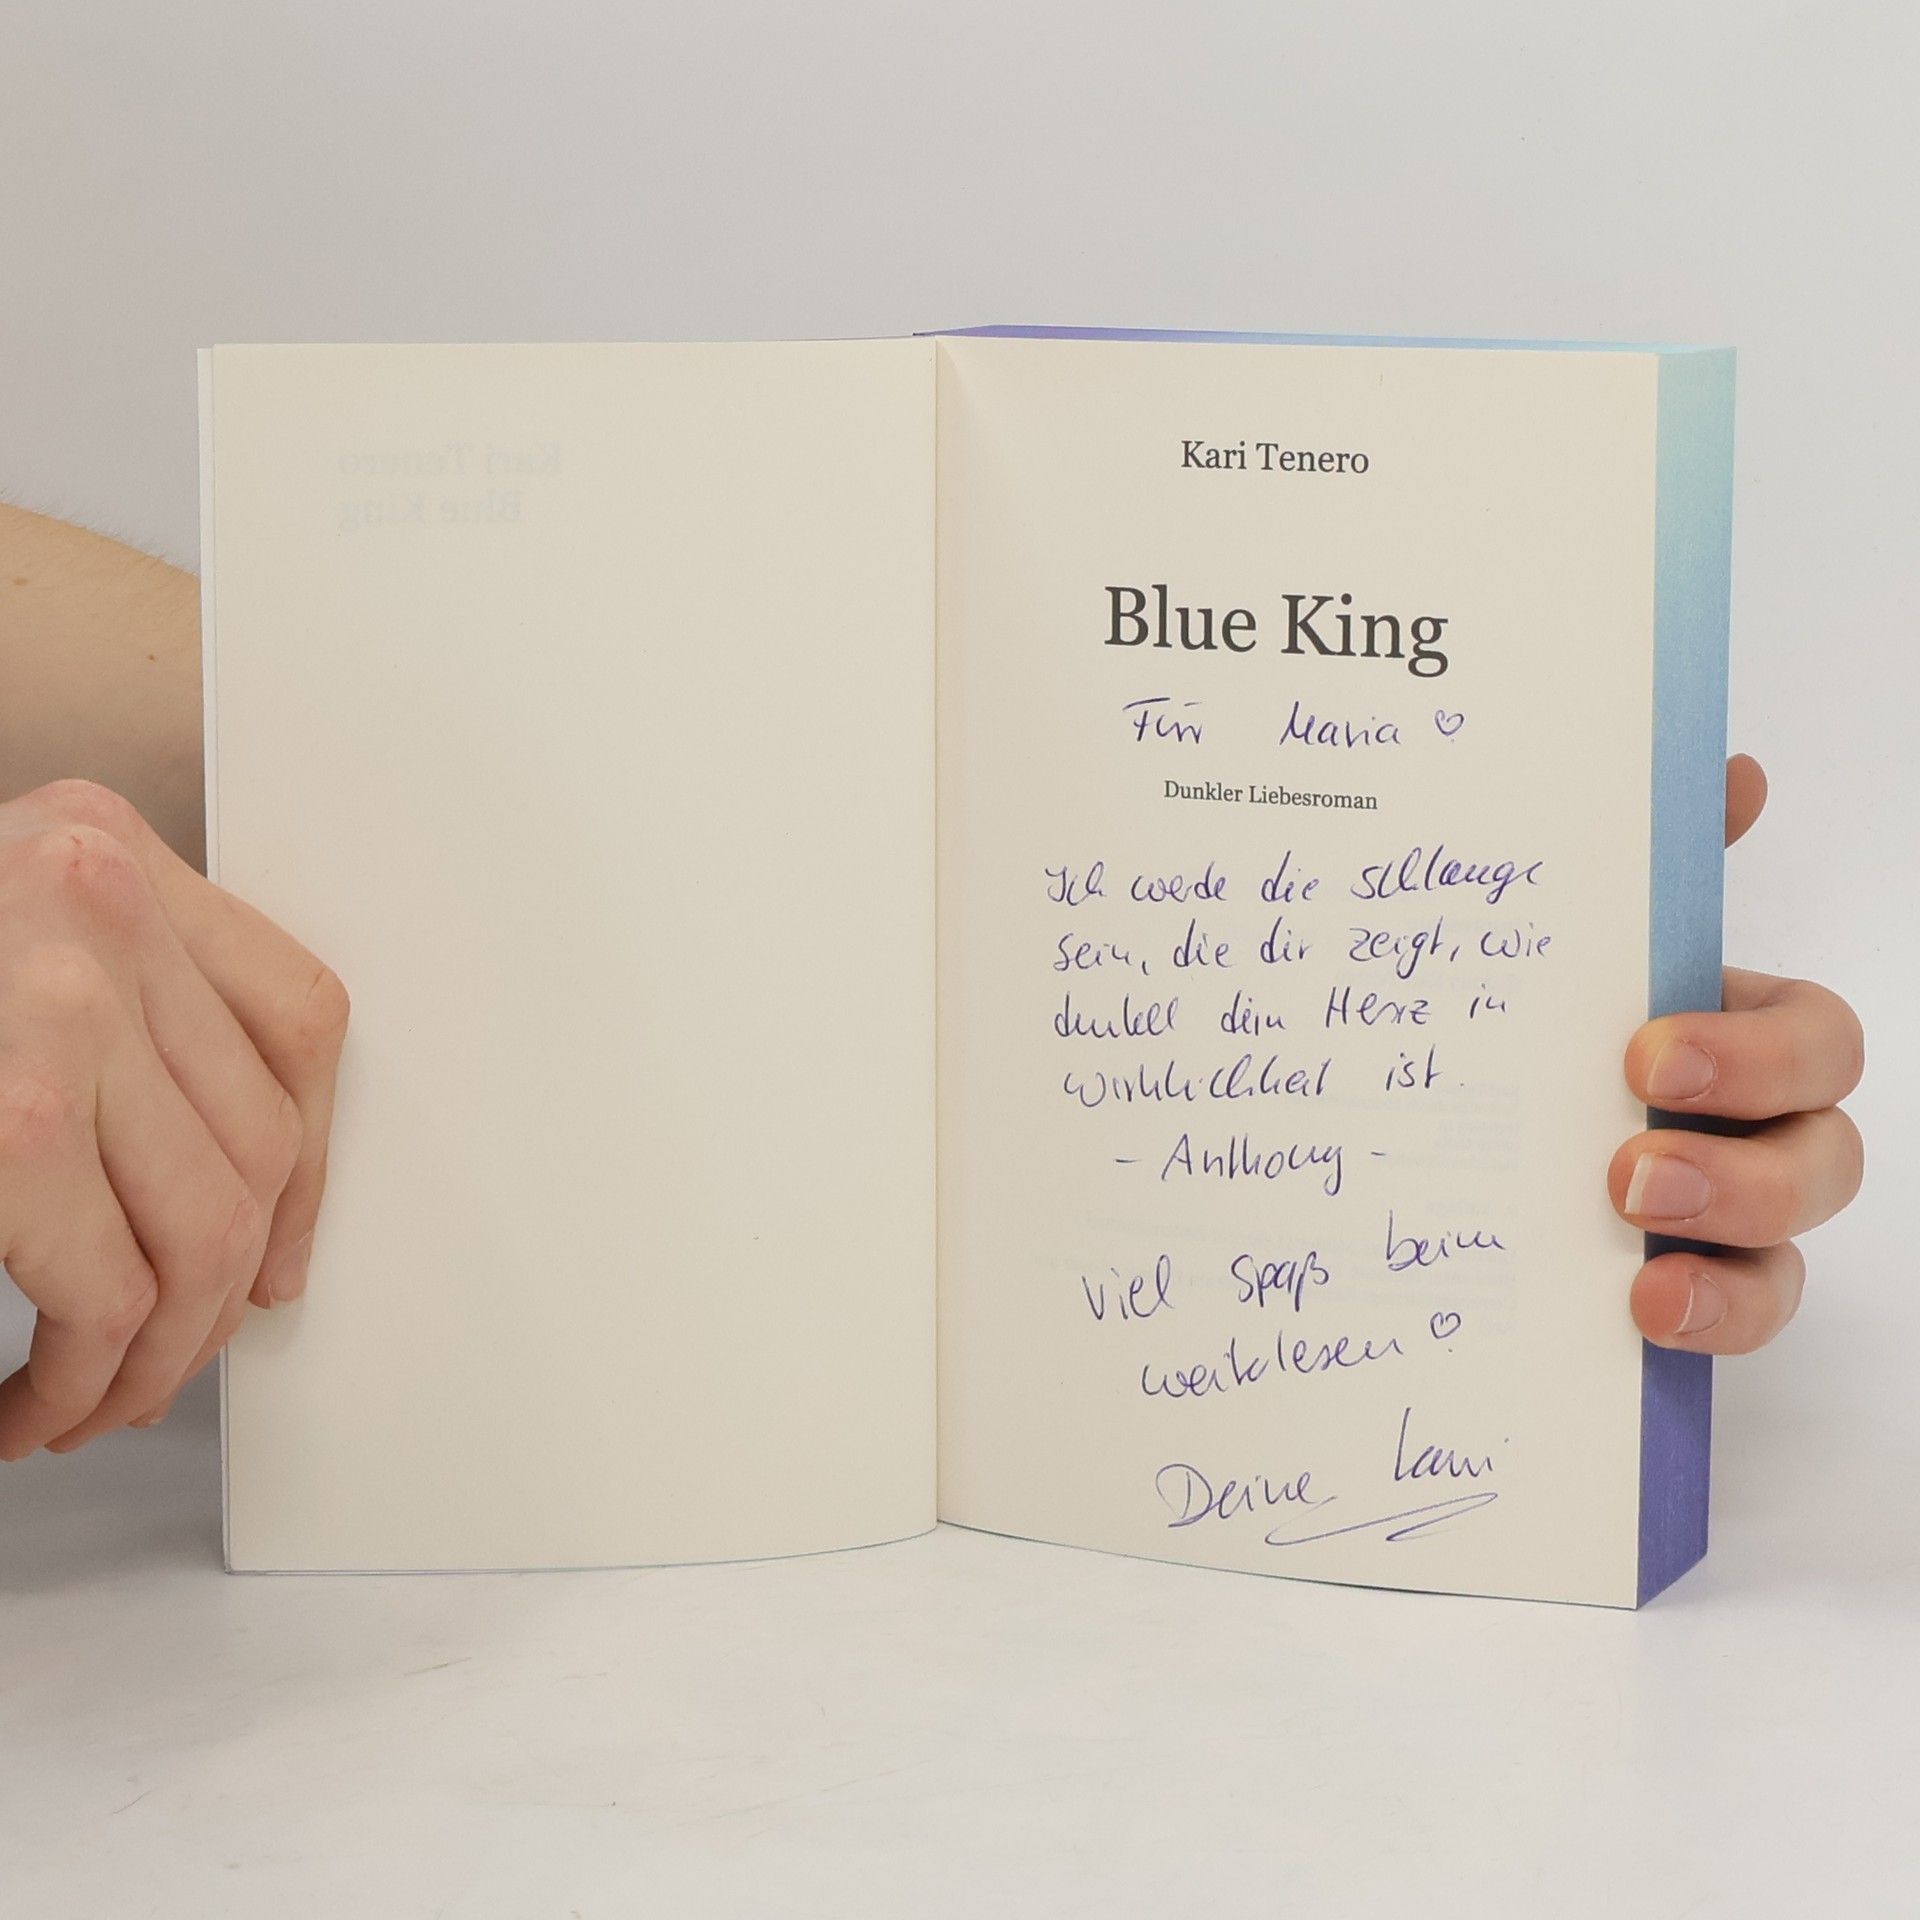 Kari Tenero
Blue King
Kari Tenero
Blue King
Für Maria ♡
Dunkler Liebesroman
Ich werde die Schlange
sein, die dir zeigt, wie
dunkel dein Herz in
Wirklichkeit ist.
- Anthony -
Viel Spaß beim
weiterlesen ♡
Deine Kari